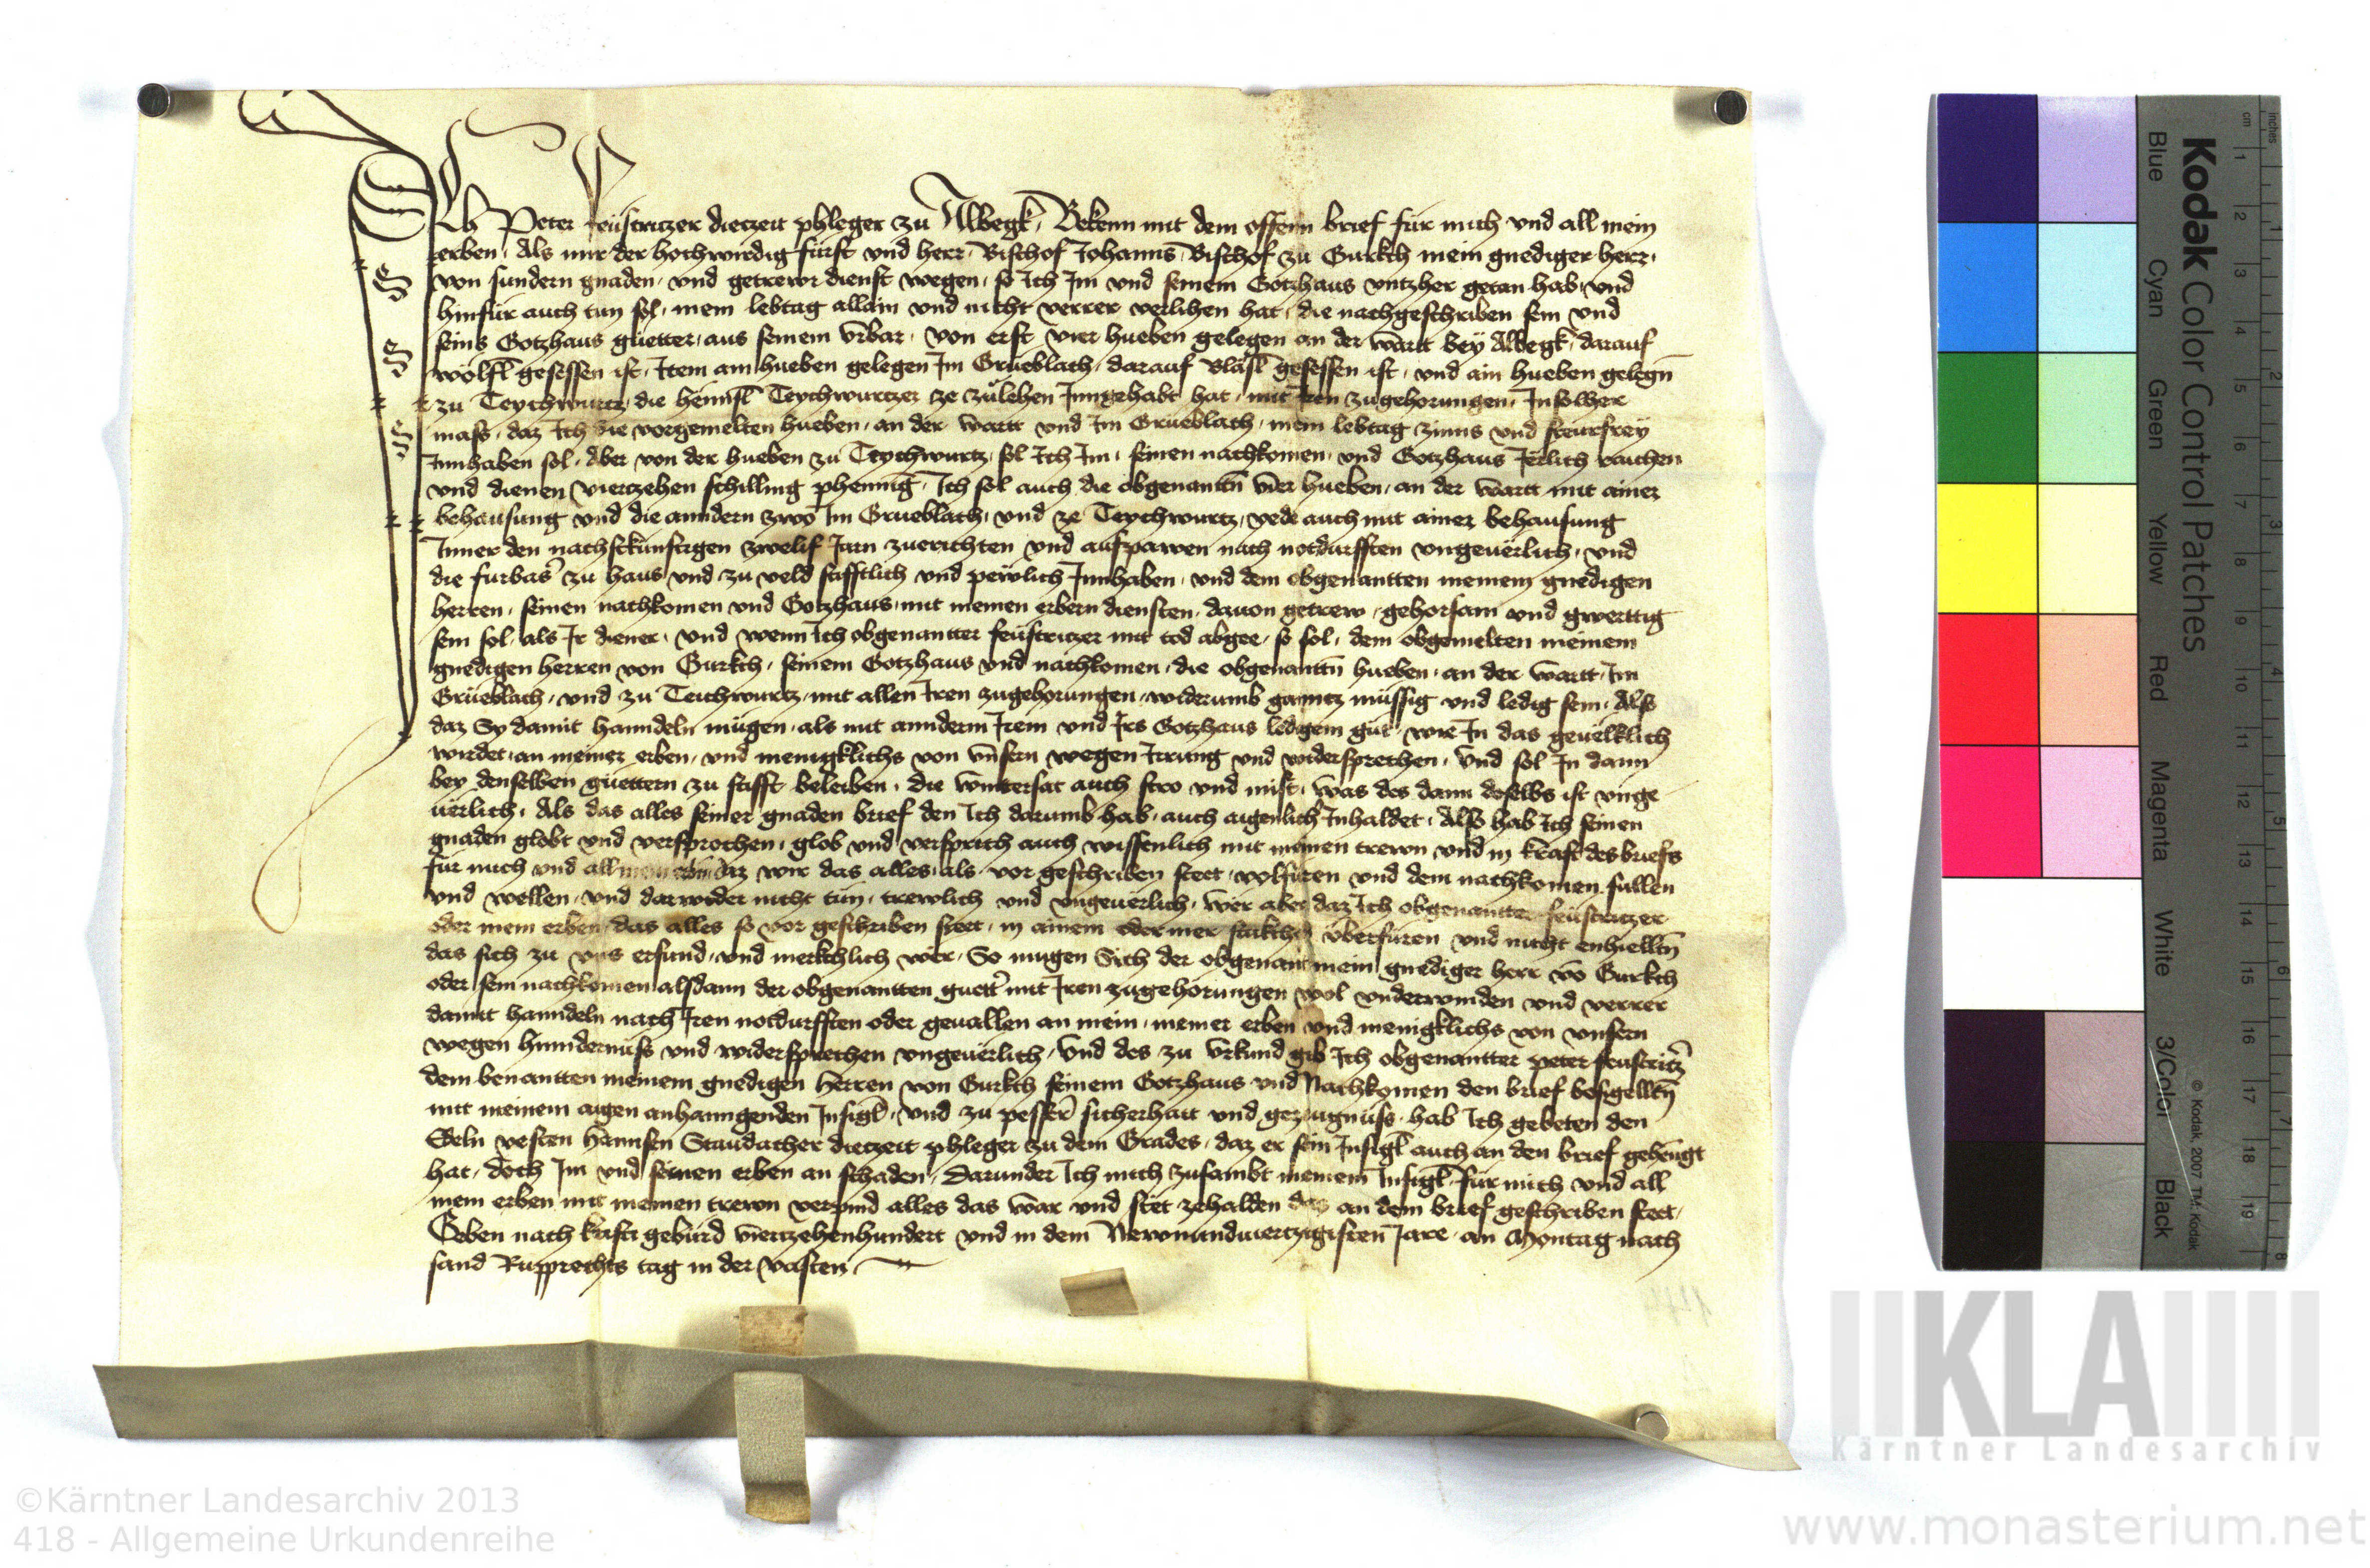 Ich Peter feustritzer dietzeit phleger zu Albegk, Bekenn mit dem offenn brief für mich vnd all mein
erben, Als mir der hochwirdig fürst vnd herr, Bischof Johanns Bischof zu Gurkch mein gnediger herr,
von sundern gnaden, vnd getrewr dienst wegen, so Ich Im vnd seinem Gotzhaus vntzher getan hab, vnd
hinfür auch tun sol, mein lebtag allain vnd nicht verrer verlihen hat, die nachgeschriben sein vnd
seins Gotzhaus güetter, aus seinem vrbar, von erst vier hueben gelegen an der wartt bey Albegk, darauf
wölfl gesessen ist, Item ain hueben gelegen Im Grüeblach, darauf Bläsl gesessen ist, vnd ain hueben gelegn
zu Teychwurtz, die hennsl Teychwurtzer ze zulehen Inngehabt hat, mit Iren zugehorungen, Insolher
mass, daz Ich die vorgemelten hueben, an der wartt vnd Im Grüeblach, mein lebtag zinns vnd steurfrey
Innhaben sol, Aber von der hueben zu Teychwurtz, sol Ich Im, seinen nachkomen, vnd Gotzhaus Jerlich raichen
vnd dienen vierzehen schilling phennig, Ich sol auch die obgenanttn vier hueben, an der wartt mit ainer
behausung vnd die anndern zwo Im Grueblach, vnd ze Teychwurtz, yede auch mit ainer behausung
Inner den nachstkunftigen zwelif Jarn zuerichten vnd aufzpawen nach notdurfften vngeuerlich, vnd
die furbas zu haus vnd zu veld stifftlich vnd pewlich Innhaben, vnd dem obgenantten meinem gnedigen
herren, seinen nachkomen vnd Gotzhaus, mit meinen erbern diensten, dauon getrew, gehorsam vnd gwerttig
sein sol, als Ir diener, vnd wenn Ich obgenantter feustritzer mit tod abgee, so sol, dem obgemelten meinem
gnedigen herren von Gurkch, seinem Gotzhaus vnd nachkomen, die obgenanttn hueben, an der wartt, Im
Grüeblach, vnd zu Teichwurtz, mit allen Iren zugehorungen, widerumb ganntz müssig vnd ledig sein, Also
daz Sy damit hanndeln mügen, als mit annderm Irem vnd Irs Gotzhaus ledigem gut, wie In das geuelklich
wirdet, an meiner erben, vnd menigklichs von vnsern wegen Irrung vnd widersprechen, vnd sol In dann
bey denselben güettern zu stifft beleiben, die wintersat auch stro vnd mist, was des dann doselbs ist vnge
uerlich, Als das alles seiner gnaden brief den Ich darumb hab, auch aigenlich Inhaldet, Also hab Ich seinen
gnaden globt vnd versprochen, glob vnd versprich auch wissenlich mit meinen trewn vnd in kraft des briefs
für mich vnd all mein erben daz wir das alles, als vor geschriben steet, volfüren vnd dem nachkomen sullen
vnd wellen, vnd darwider nicht tun, trewlich vnd vngeuerlich, wer aber daz Ich obgenantter feustritzer
oder mein erben, das alles so vor geschriben steet, in ainem oder mer stukchen überfüren vnd nicht enhielltn
das sich zu vns erfund, vnd merkchlich wer, So mugen Sich der obgenant mein gnediger herr vo Gurkch
oder sein nachkomen alsdann der obgenantten guett mit Iren zugehorungen wol vnderwinden vnd verrer
damit hanndeln nach Iren notdurfften oder geuallen an mein, meiner erben vnd menigklichs von vnsern
wegen hinndernüss vnd widersprechen vngeuerlich, vnd des zu vrkund gib Ich obgenantter peter feustritz
dem benantten meinem gnedigen herren von Gurkch seinem Gotzhaus vnd Nachkomen den brief besigelltn
mit meinem aigen anhanngenden Insigl, vnd zu pesser sicherhait vnd gezeugnüss, hab Ich gebeten den
Edeln vesten hannsen Staudacher dietzeit phleger zu dem Grades, daz er sein Insigl auch an den brief gehengt
hat, doch Im vnd seinen erben an schaden, Darunder Ich mich zusambt meinem Insigl, für mich vnd all
mein erben mit meinen trewn verpind alles das war vnd stet zehalden das an dem brief geschriben steet,
Geben nach kristi geburd vierzehenhundert vnd in dem Newnundvierzigisten Jare, an Montag nach
sand Rupprechts tag in der vasten
Kodak Color Control Patches
Blue Cyan Green Yellow Red Magenta White 3/Color Black
© Kodak, 2007 TM: Kodak
inches 1 2 3 4 5 6 7 8
cm 1 2 3 4 5 6 7 8 9 10 11 12 13 14 15 16 17 18 19
KLA
Kärntner Landesarchiv
©Kärntner Landesarchiv 2013
418 - Allgemeine Urkundenreihe
www.monasterium.net